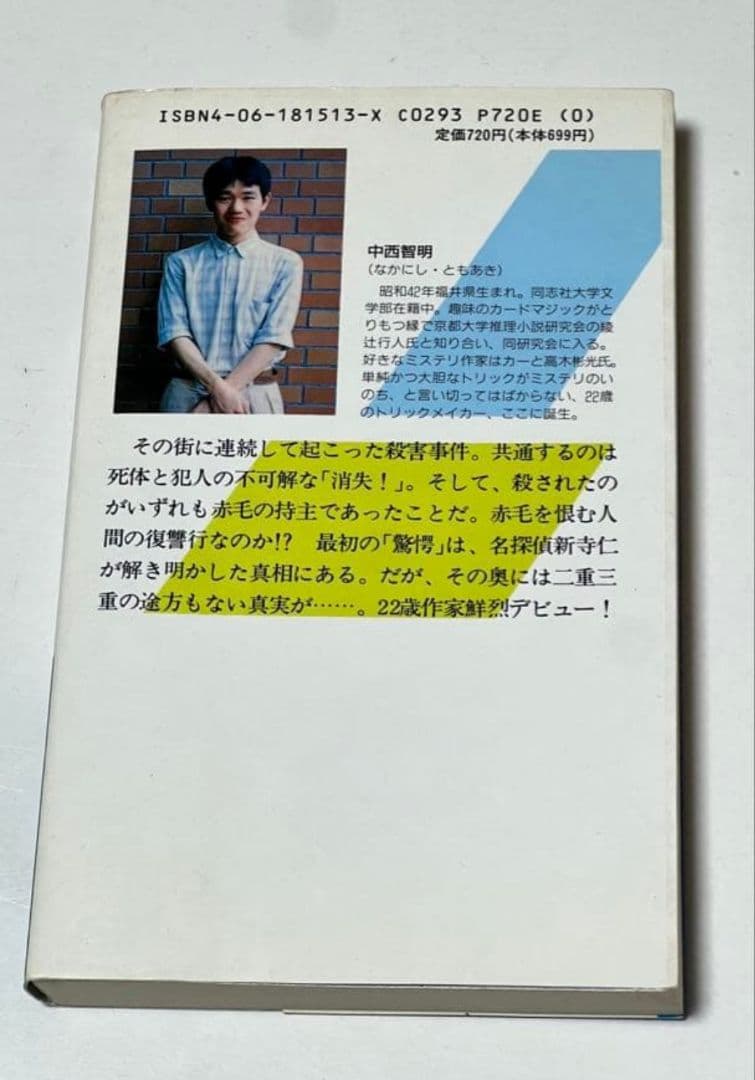 ISBN4-06-181513-X C0293 P720E (0)
定価720円(本体699円)
中西智明
(なかにし・ともあき)
昭和42年福井県生まれ。同志社大学文
学部在籍中。趣味のカードマジックがと
りもつ縁で京都大学推理小説研究会の綾
辻行人氏と知り合い、同研究会に入る。
好きなミステリ作家はカーと高木彬光氏。
単純かつ大胆なトリックがミステリのい
のち、と言い切ってはばからない、22歳
のトリックメイカー、ここに誕生。
その街に連続して起こった殺害事件。共通するのは
死体と犯人の不可解な「消失!」。そして、殺されたの
がいずれも赤毛の持主であったことだ。赤毛を恨む人
間の復讐行なのか!? 最初の「驚愕」は、名探偵新寺仁
が解き明かした真相にある。だが、その奥には二重三
重の途方もない真実が……。22歳作家鮮烈デビュー!